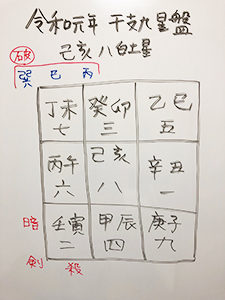 令和元年 干支九星盤
己亥 八白土星
破
巽 巳 丙
丁未 癸卯 乙巳
七 三 五
丙午 己亥 辛丑
六 八 一
壬寅 甲辰 庚子
二 四 九
暗
剣 殺